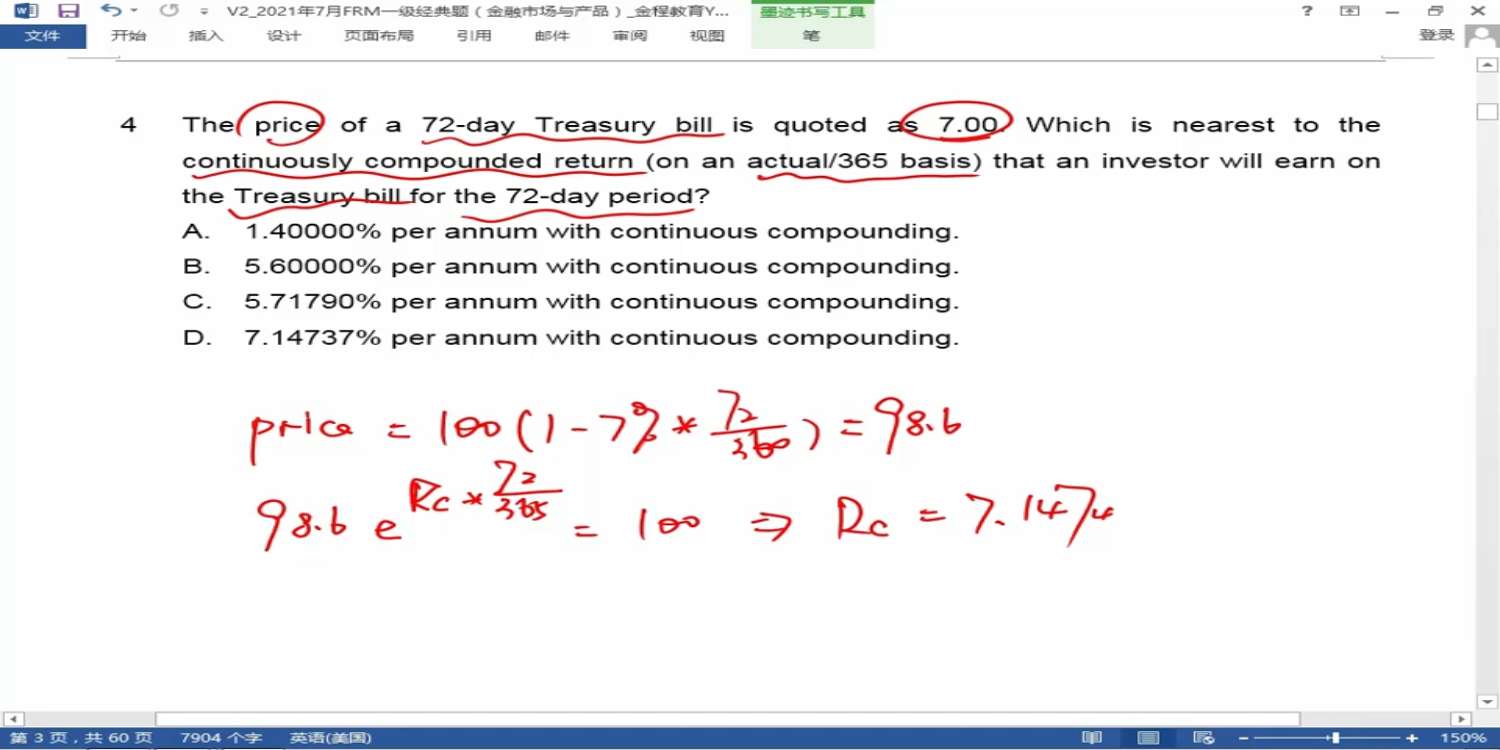 V2_2021年7月FRM一级经典题（金融市场与产品）_金程教育Y...
墨迹书写工具
?
文件 开始 插入 设计 页面布局 引用 邮件 审阅 视图 笔 登录
4 The price of a 72-day Treasury bill is quoted as 7.00. Which is nearest to the
continuously compounded return (on an actual/365 basis) that an investor will earn on
the Treasury bill for the 72-day period?
A. 1.40000% per annum with continuous compounding.
B. 5.60000% per annum with continuous compounding.
C. 5.71790% per annum with continuous compounding.
D. 7.14737% per annum with continuous compounding.
price = 100(1-7% * 72/360) = 98.6
98.6 e^Rc * 72/365 = 100 ⇒ Rc = 7.1474
第 3 页，共 60 页 7904 个字 英语(美国) 150%